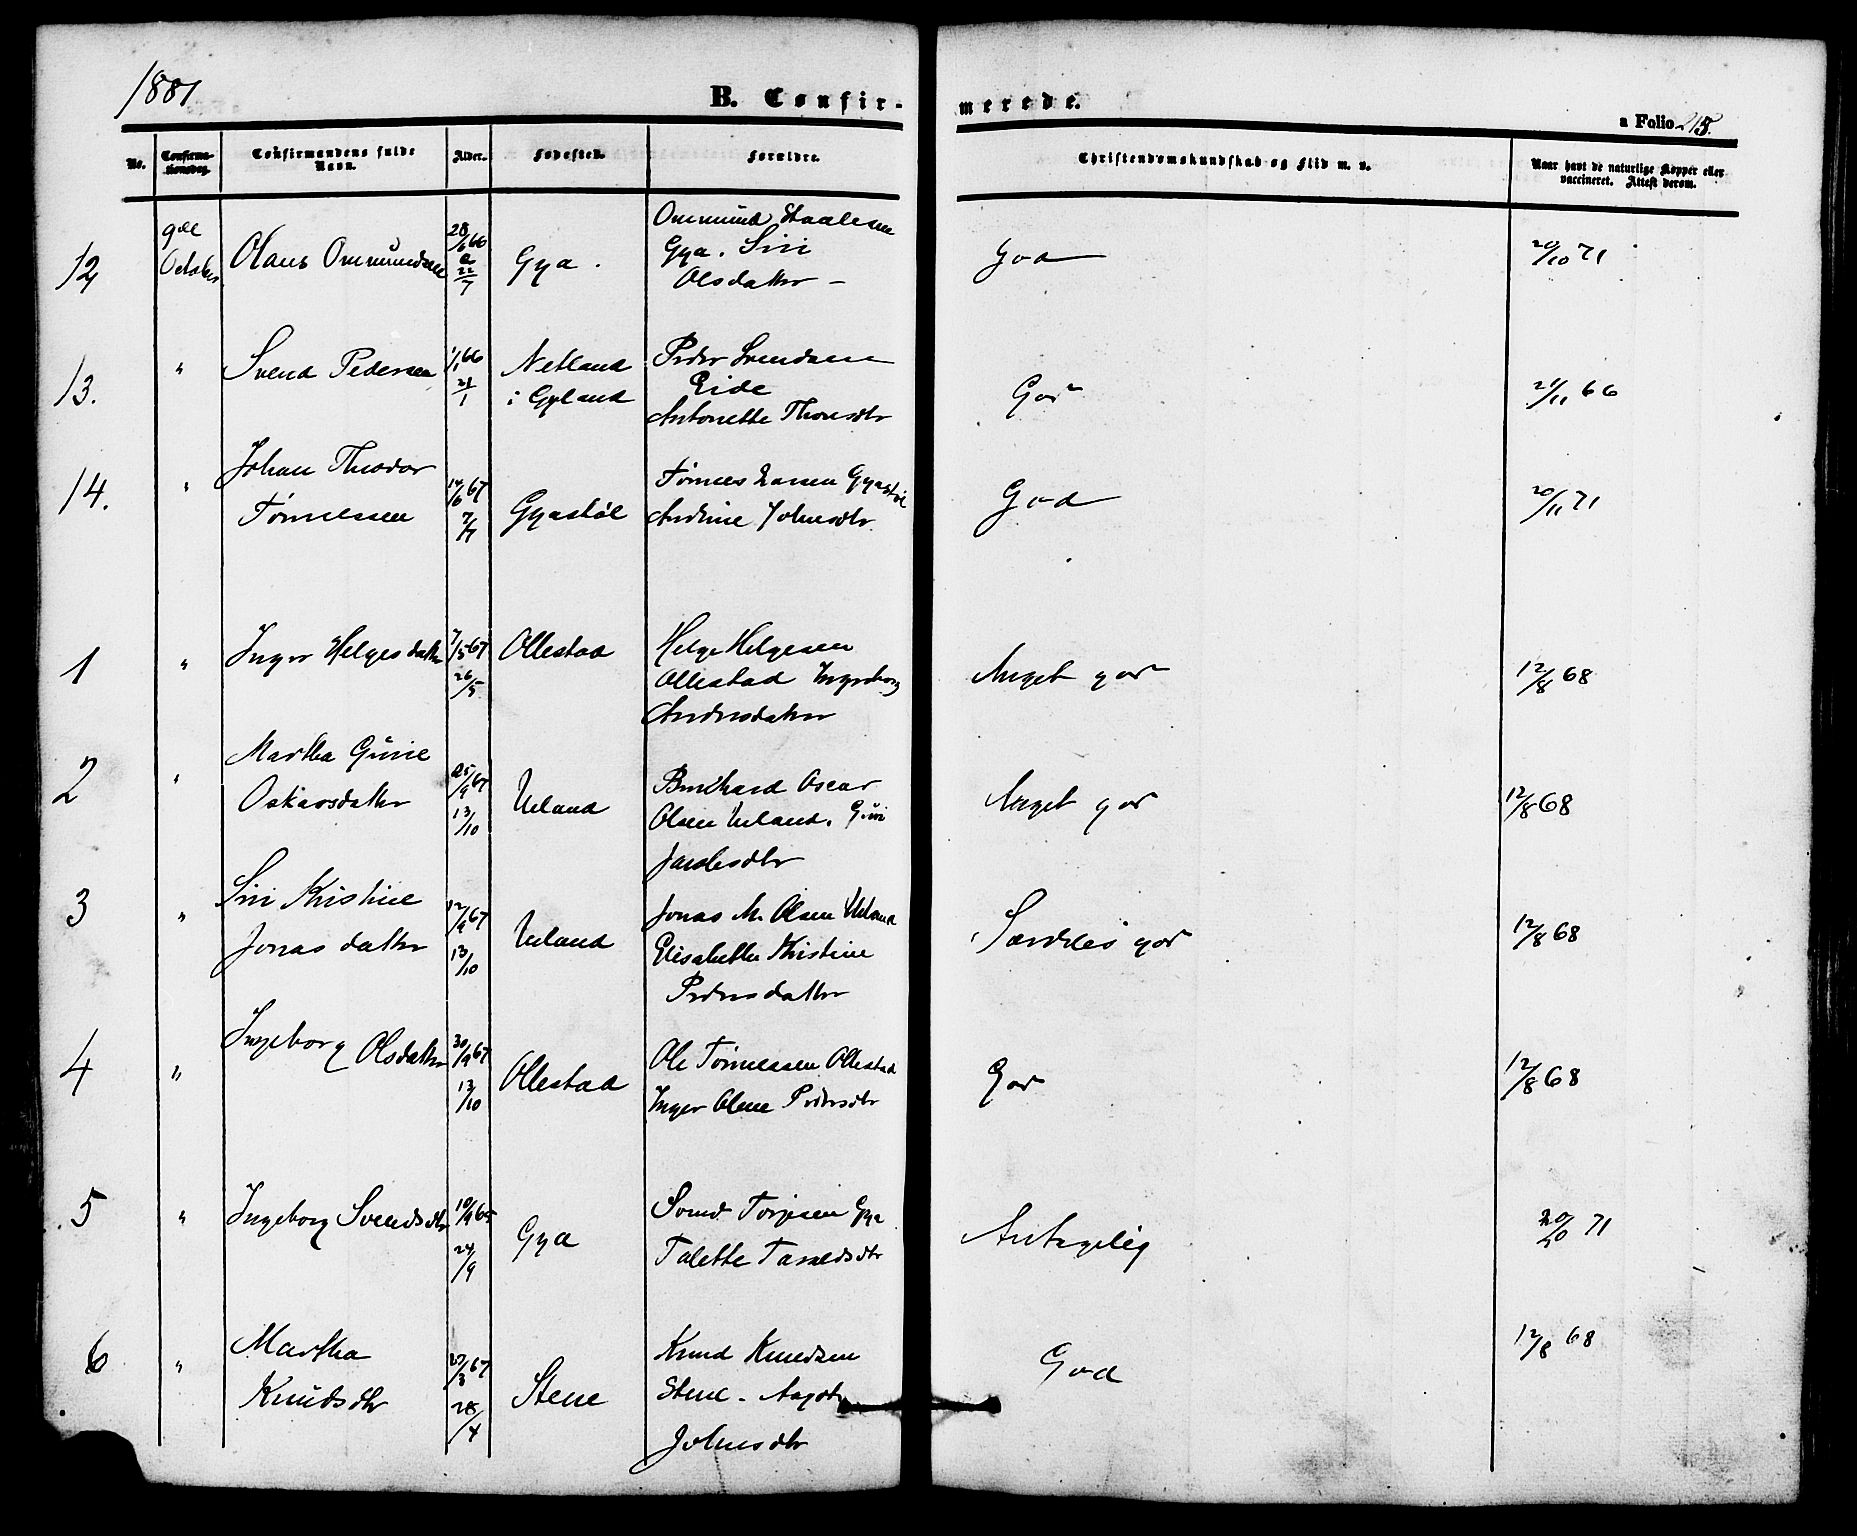 1881
B. Confir-
merede.
a Folio 215.
No.
Confirma-
tionsdag.
Confirmandens fulde
Navn.
Alder.
Fødested.
Forældre.
Christendomskundskab og Flid m. v.
Naar havt de naturlige Kopper eller
vaccineret. Attest derom.
12 9de October Olaus Ommundsen 28/6 66 22/7 Gya. Ommund Staalesen
Gya. Siri
Olsdatter –
God 20/10 71
13. " Svend Pedersen 1/1 66 21/1 Netland
i Gyland
Peder Svendsen
Eide
Antonette Thorsdtr
God 21/11 66
14. " Johan Theodor
Tønnessen
14/6 67 7/7 Gyastøl
Tønnes Larsen Gyastøl
Andrine Johnsdtr.
God 20/11 71
1 " Inger Helgesdatter 7/5 67 26/5 Ollestad
Helge Helgesen
Ollestad Ingeborg
Andersdatter
Meget god 12/8 68
2 " Martha Gurie
Oskarsdatter
25/9 67 13/10 Ueland
Bernhard Oscar
Olsen Ueland. Guri
Jacobsdtr
Meget god 12/8 68
3 " Siri Kristine
Jonasdatter
12/9 67 13/10 Ueland
Jonas M. Olsen Ueland
Elisabethe Kristine
Pedersdatter
Særdeles god 12/8 68
4 " Ingeborg Olsdatter 30/9 67 13/10 Ollestad
Ole Tønnessen Ollestad
Inger Olene Pedersdtr
God 12/8 68
5 " Ingeborg Svendsdtr 10/9 65 24/9 Gya
Svend Torjesen Gya
Talette Taraldsdtr
Antagelig 20/10 71
6 " Martha
Knudsdtr
27/3 67 28/4 Stene
Knud Knudsen
Stene. Aagot
Johnsdtr
God 12/8 68